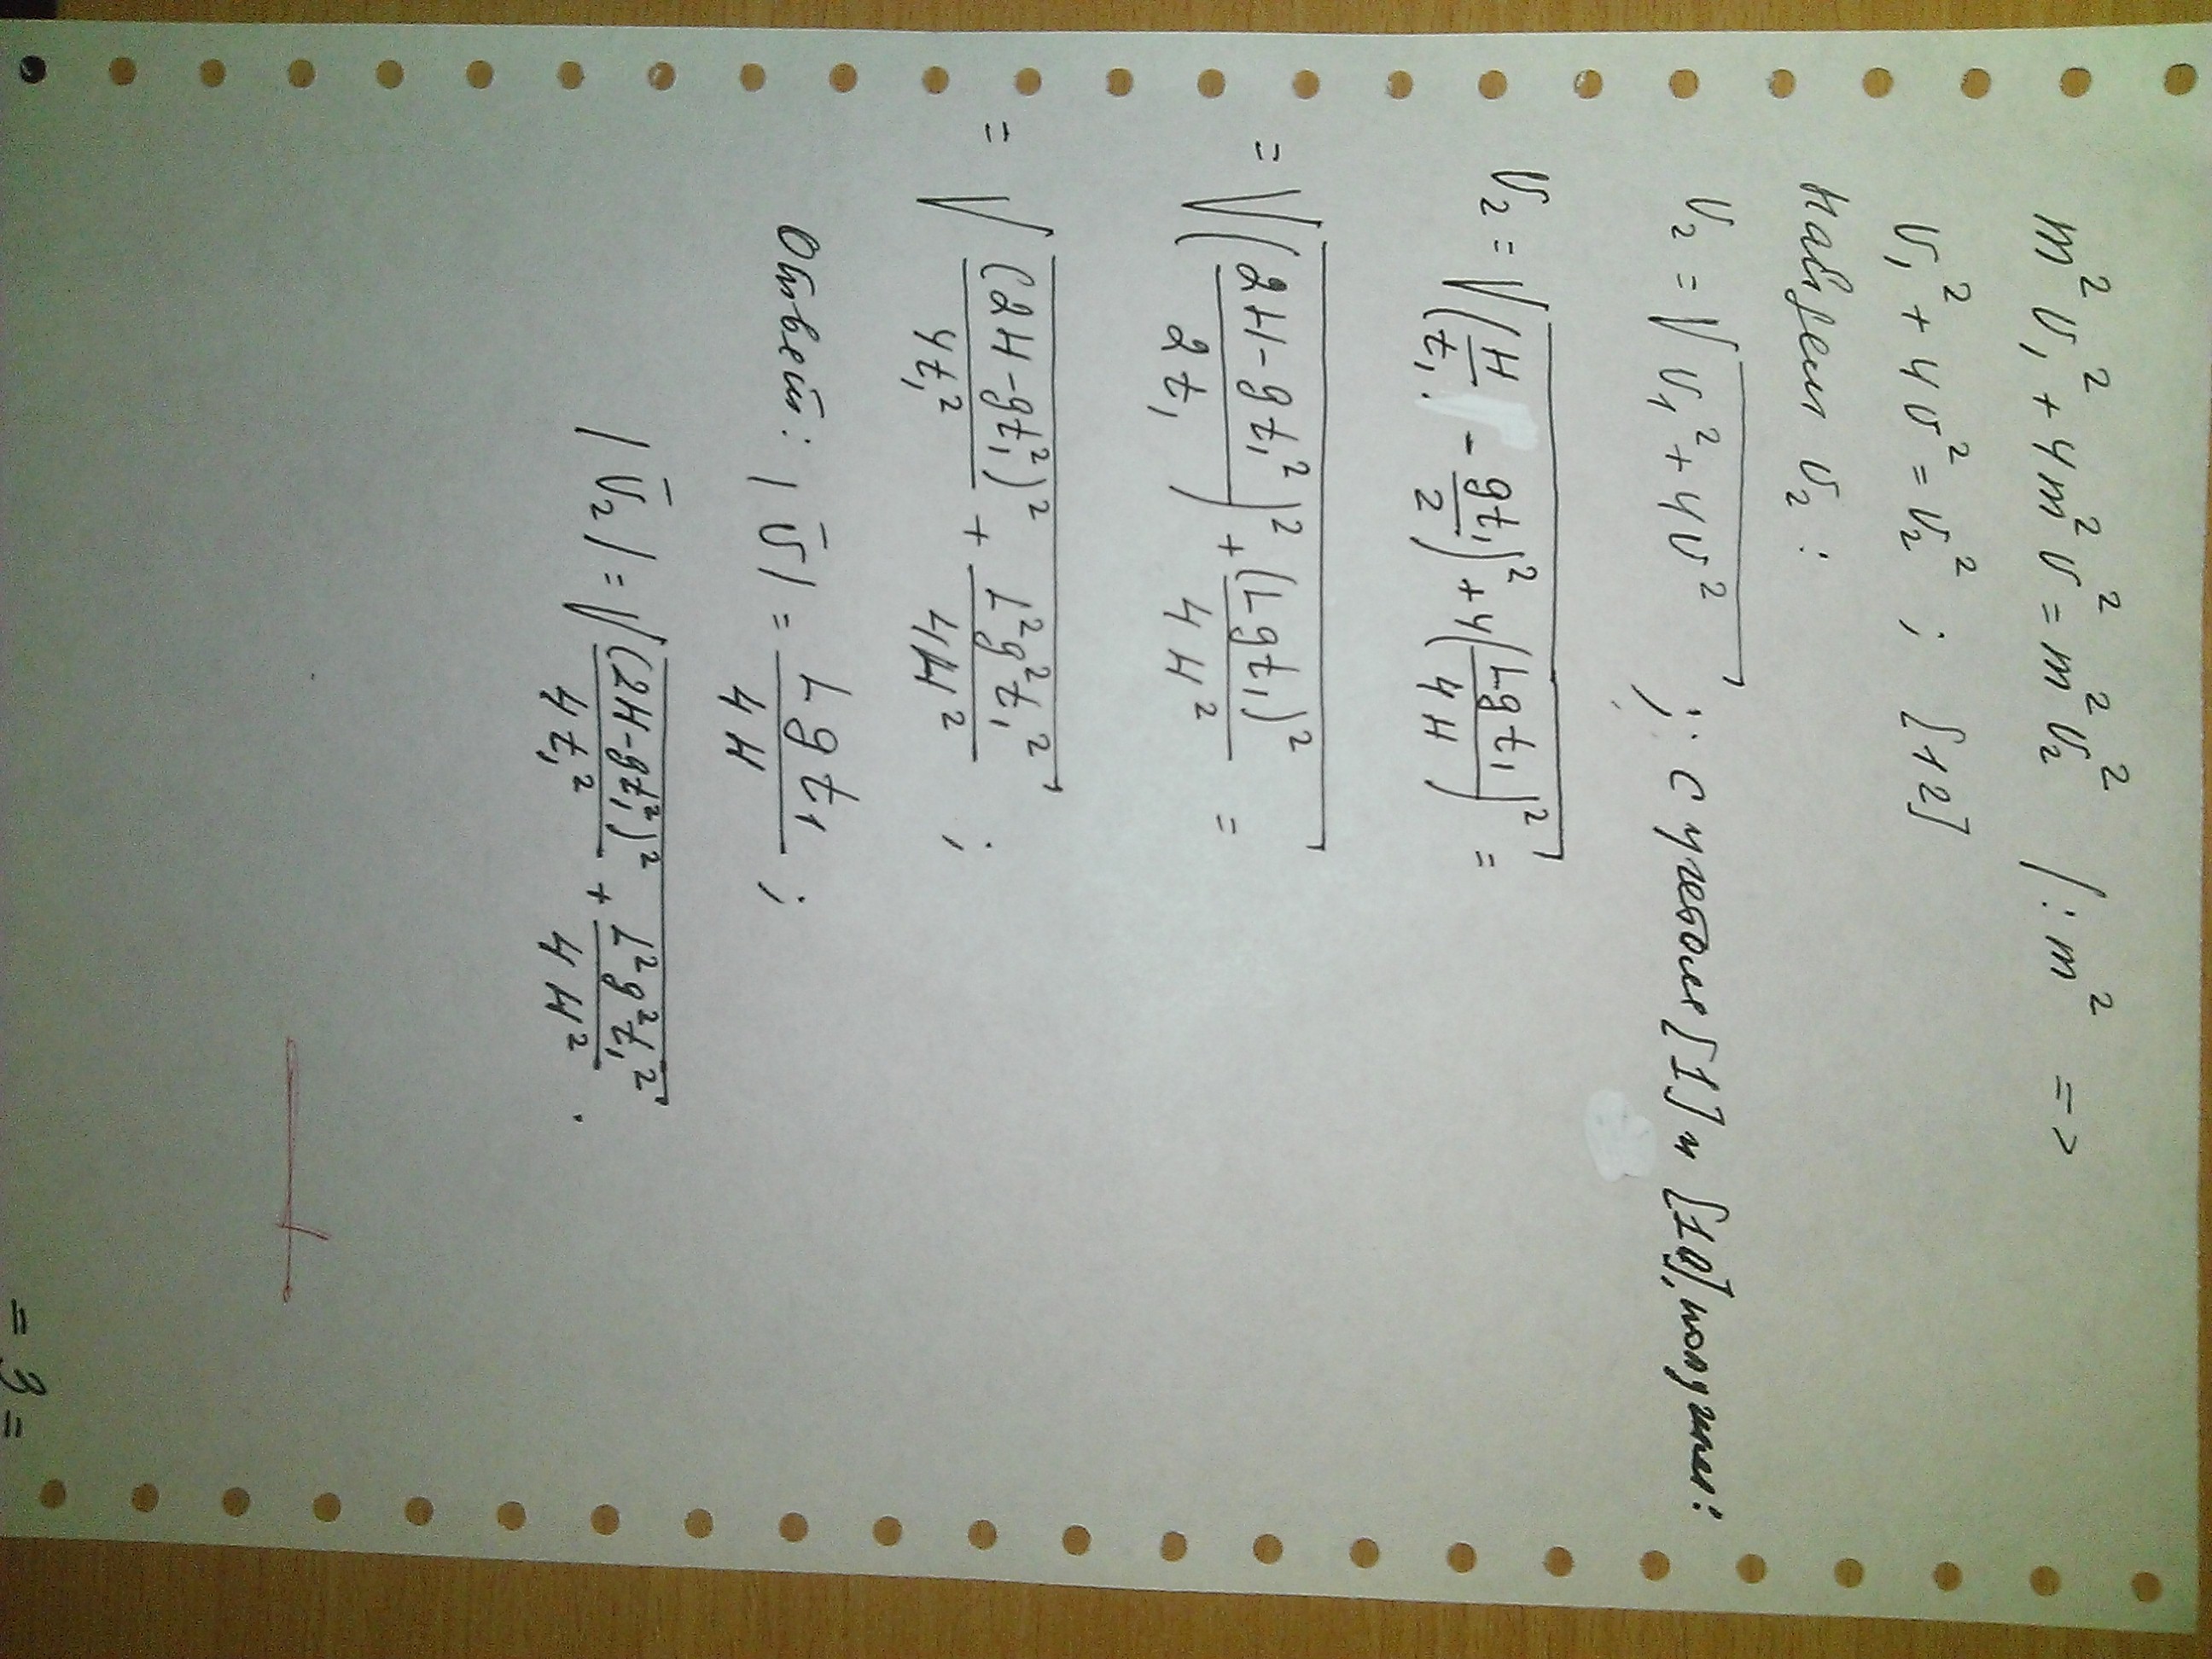 m²v₁² + 4m²v² = m²v₂² |:m² =>
v₁² + 4v² = v₂² ; [12]
Найдем v₂ :
v₂ = √(v₁² + 4v²) ; с учетом [1] и [10], получим:
v₂ = √((H/t₁ - gt₁/2)² + 4(Lgt₁/4H)²) =
= √(((2H - gt₁²)/2t₁)² + (Lgt₁)²/4H²) =
= √((2H - gt₁²)²/4t₁² + L²g²t₁²/4H²) ;
Ответ: |v̄| = Lgt₁/4H ;
|v̄₂| = √((2H - gt₁²)²/4t₁² + L²g²t₁²/4H²) .
= 3 =